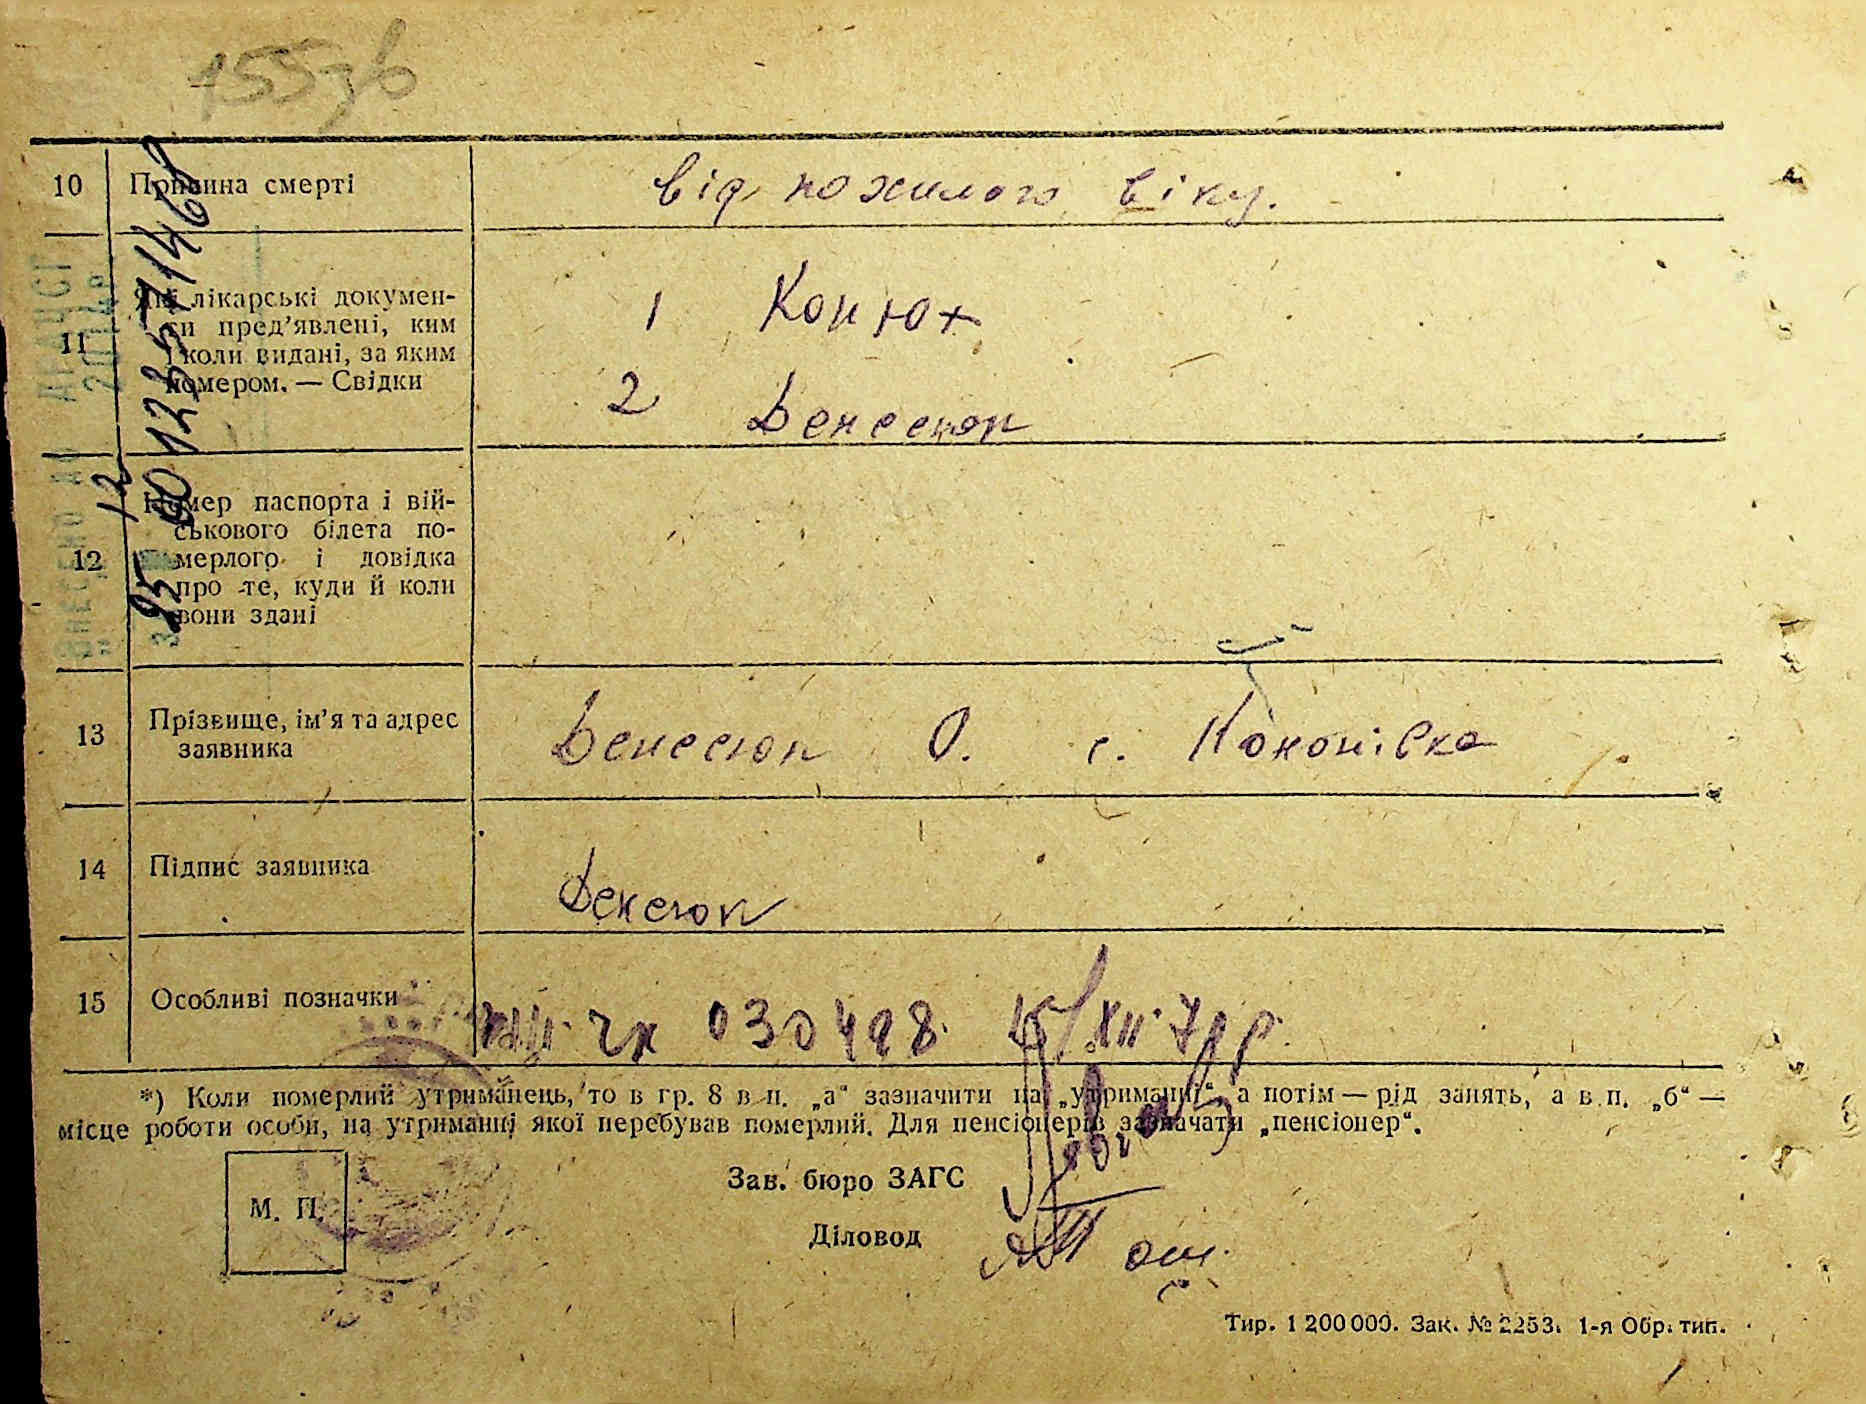 155зв
10 Причина смерті від похилого віку.
11 Які лікарські докумен-
ти пред’явлені, ким
і коли видані, за яким
номером. — Свідки
1 Конюх
2 Денесюк
12 Номер паспорта і вій-
ськового білета по-
мерлого і довідка
про те, куди й коли
вони здані
00123571468
12
25
13 Прізвище, ім’я та адрес
заявника
Денесюк О. с. Кононівка
14 Підпис заявника
Денесюк
15 Особливі позначки
030498.
*) Коли померлий утриманець, то в гр. 8 в п. „а“ зазначити на „утриманні“, а потім — рід занять, а в п. „б“ —
місце роботи особи, на утриманні якої перебував померлий. Для пенсіонерів зазначати „пенсіонер“.
М. П.
Зав. бюро ЗАГС
Діловод
Тир. 1 200 000. Зак. № 2253. 1-я Обр. тип.